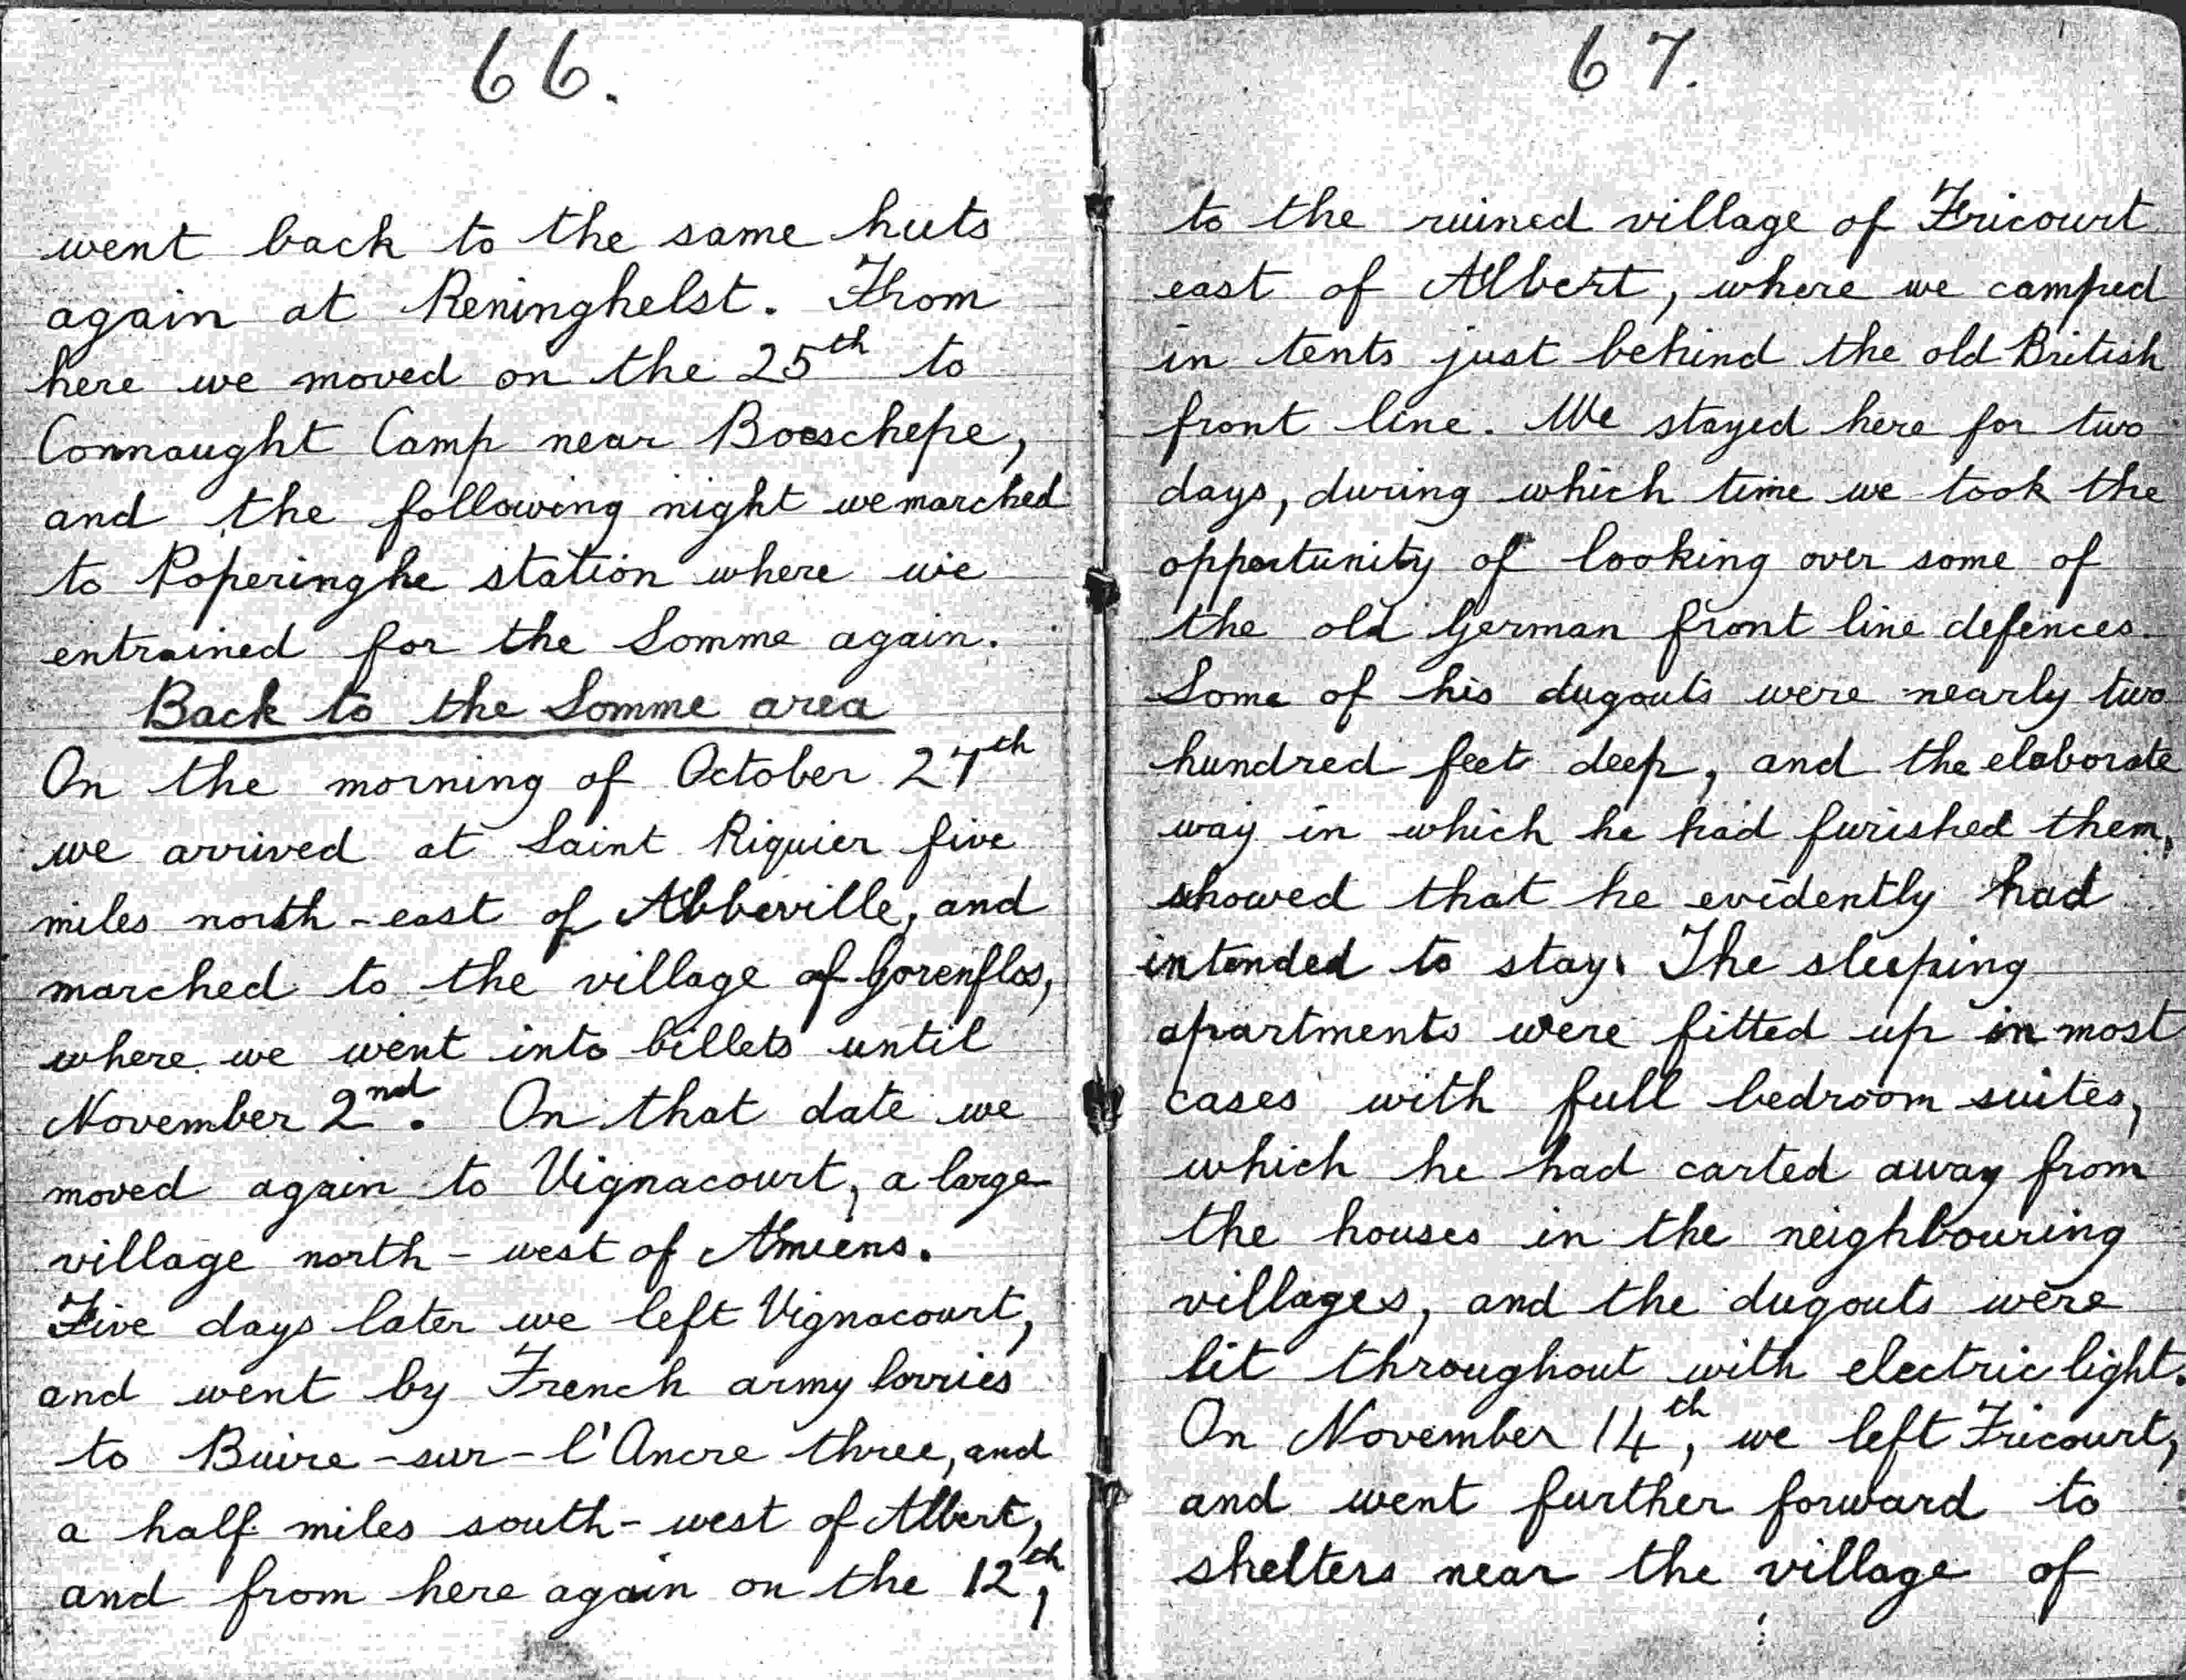 66.
went back to the same huts
again at Reninghelst. From
here we moved on the 25th to
Connaught Camp near Boeschepe,
and the following night we marched
to Poperinghe station where we
entrained for the Somme again.
Back to the Somme area
On the morning of October 27th
we arrived at Saint Riquier five
miles north-east of Abbeville, and
marched to the village of Gorenflos,
where we went into billets until
November 2nd. On that date we
moved again to Vignacourt, a large
village north-west of Amiens.
Five days later we left Vignacourt,
and went by French army lorries
to Buire-sur-l'Ancre three, and
a half miles south-west of Albert,
and from here again on the 12th,
67.
to the ruined village of Fricourt
east of Albert, where we camped
in tents just behind the old British
front line. We stayed here for two
days, during which time we took the
opportunity of looking over some of
the old German front line defences.
Some of his dugouts were nearly two
hundred feet deep, and the elaborate
way in which he had furished them,
showed that he evidently had
intended to stay. The sleeping
apartments were fitted up in most
cases with full bedroom suites,
which he had carted away from
the houses in the neighbouring
villages, and the dugouts were
lit throughout with electric light.
On November 14th, we left Fricourt,
and went further forward to
shelters near the village of